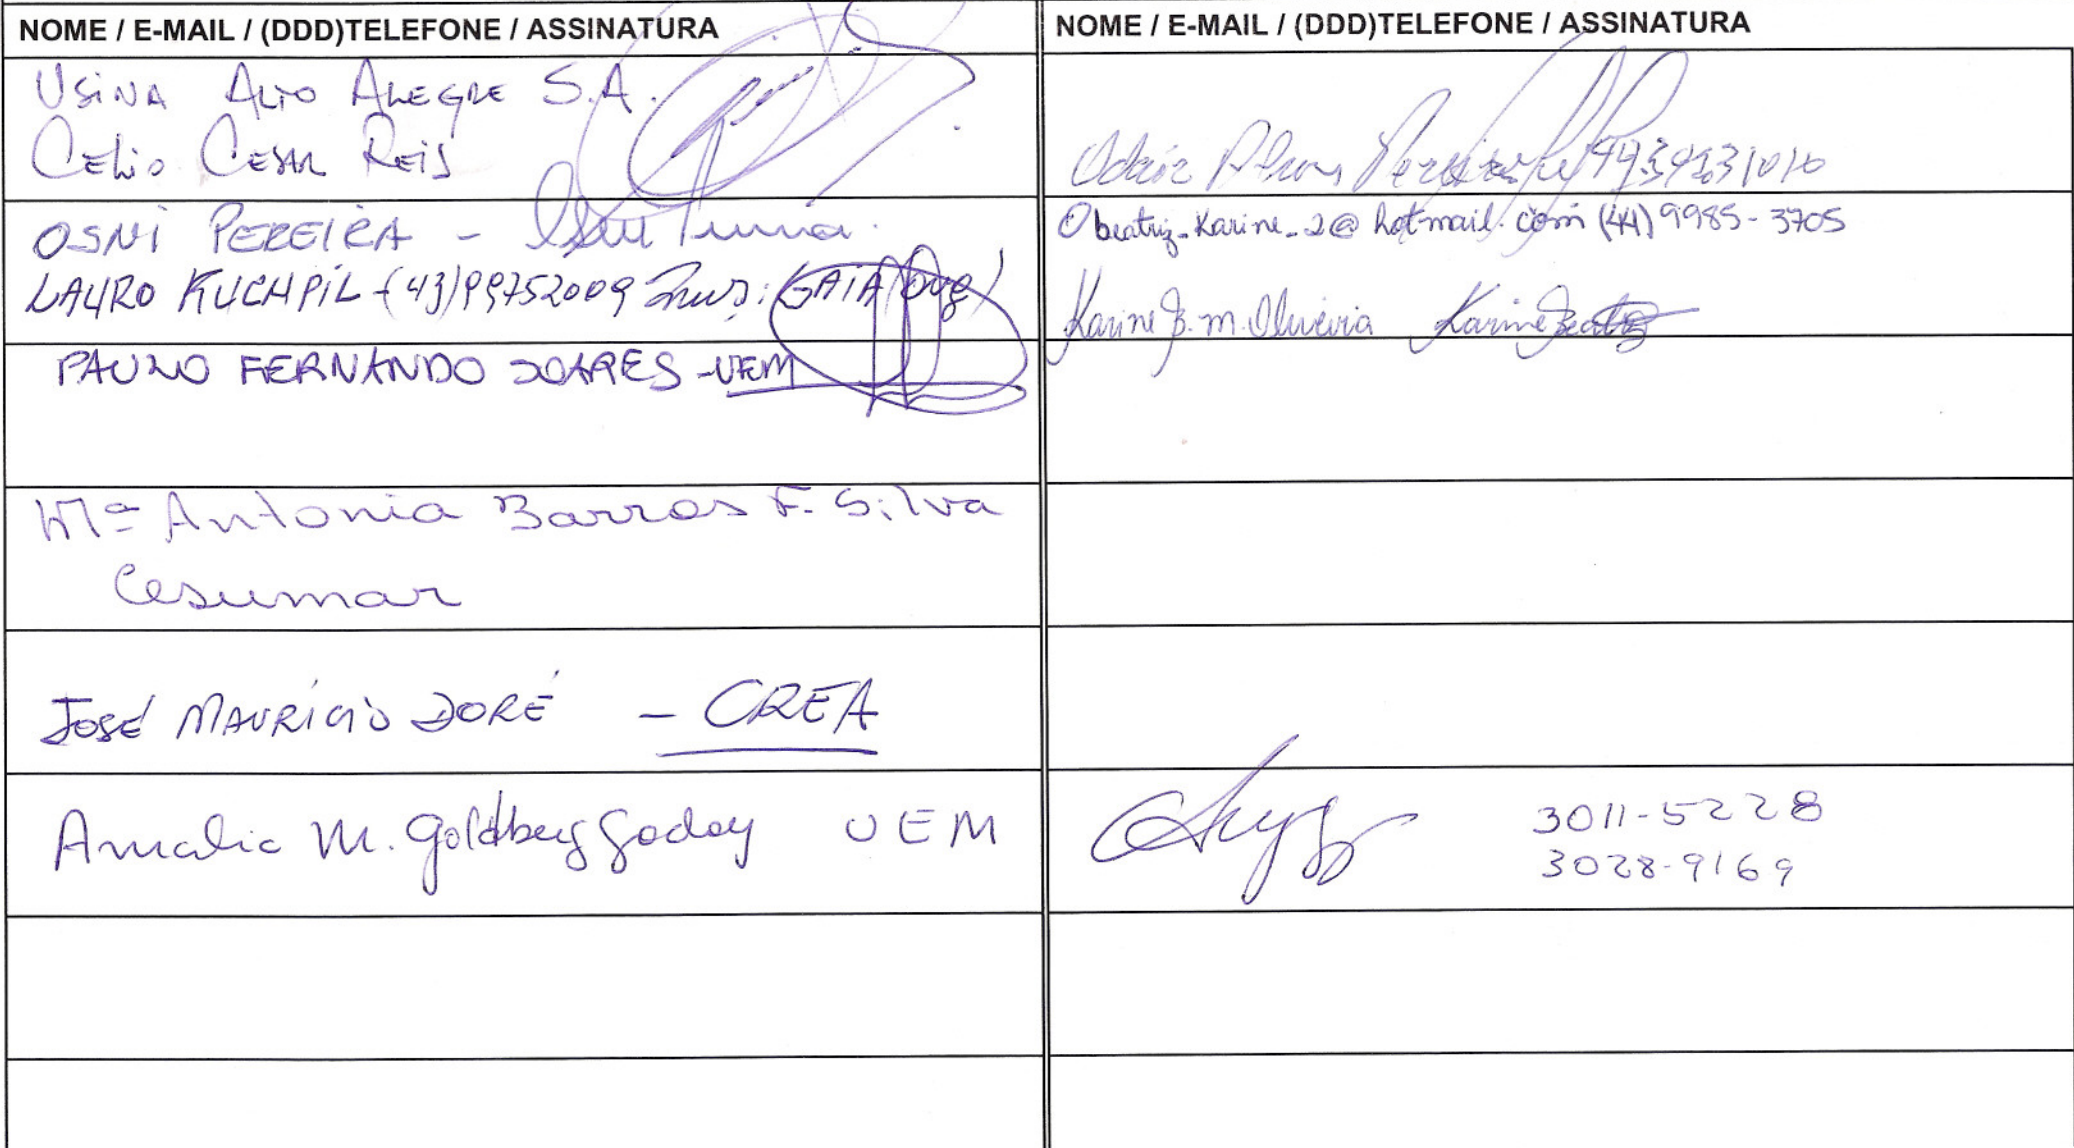 NOME / E-MAIL / (DDD)TELEFONE / ASSINATURA
Usina Alto Alegre S.A.
Celio Cesar Reis
OSNI PEREIRA -
LAURO KUCHPIL - (43)99752009 GAIA (ong)
PAULO FERNANDO SOARES - UEM
Mª Antonia Barros F. Silva
Cesumar
JOSÉ MAURICIO DORÉ - CREA
Amalia M. Goldberg Godoy UEM
NOME / E-MAIL / (DDD)TELEFONE / ASSINATURA
beatriz_karine_2@hotmail.com (44) 9985-3705
Karine B. M. Oliveira Karine Beatriz
3011-5228
3028-9169